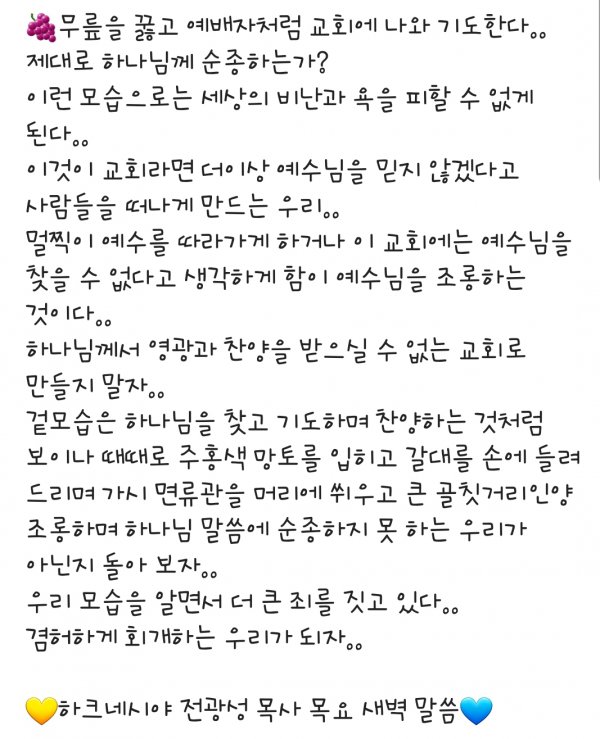 🍇무릎을 꿇고 예배자처럼 교회에 나와 기도한다。。
제대로 하나님께 순종하는가?
이런 모습으로는 세상의 비난과 욕을 피할 수 없게
된다。。
이것이 교회라면 더이상 예수님을 믿지 않겠다고
사람들을 떠나게 만드는 우리。。
멀찍이 예수를 따라가게 하거나 이 교회에는 예수님을
찾을 수 없다고 생각하게 함이 예수님을 조롱하는
것이다。。
하나님께서 영광과 찬양을 받으실 수 없는 교회로
만들지 말자。。
겉모습은 하나님을 찾고 기도하며 찬양하는 것처럼
보이나 때때로 주홍색 망토를 입히고 갈대를 손에 들려
드리며 가시 면류관을 머리에 씌우고 큰 골칫거리인양
조롱하며 하나님 말씀에 순종하지 못 하는 우리가
아닌지 돌아 보자。。
우리 모습을 알면서 더 큰 죄를 짓고 있다。。
겸허하게 회개하는 우리가 되자。。
💛하크네시야 전광성 목사 목요 새벽 말씀💙